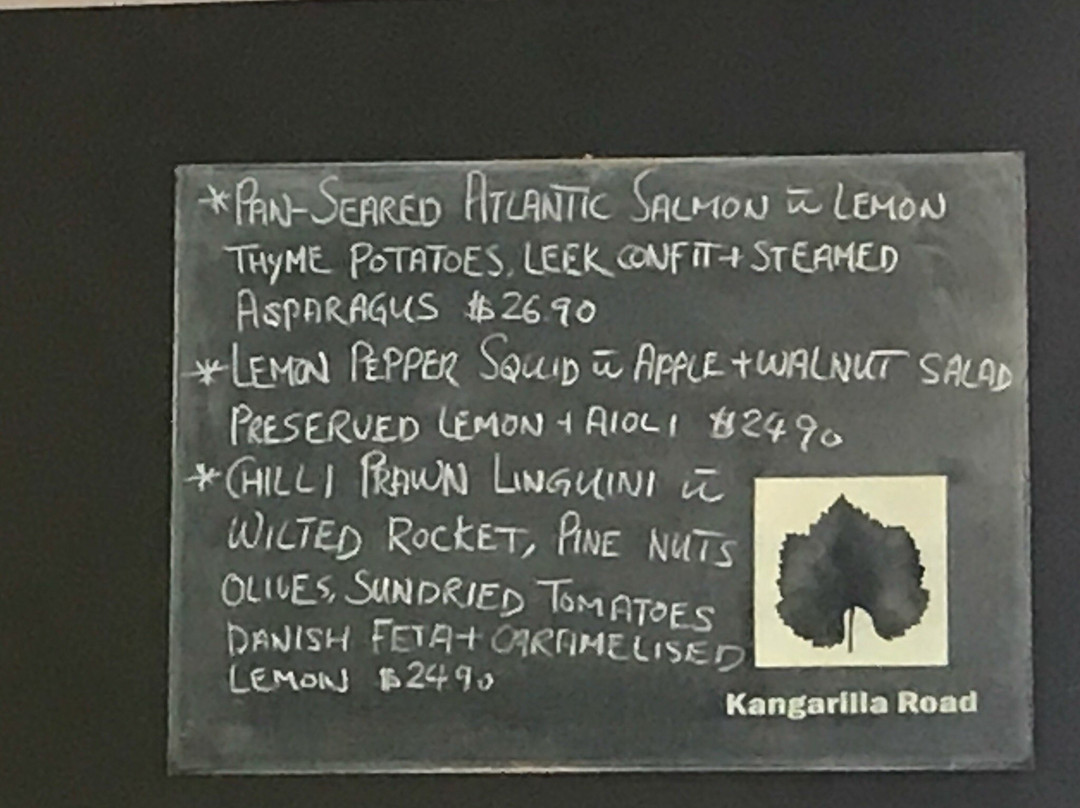 *PAN-SEARED ATLANTIC SALMON w̄ LEMON
THYME POTATOES, LEEK CONFIT + STEAMED
ASPARAGUS $26.90
*LEMON PEPPER SQUID w̄ APPLE + WALNUT SALAD
PRESERVED LEMON + AIOLI $24 90
*CHILLI PRAWN LINGUINI w̄
WILTED ROCKET, PINE NUTS
OLIVES, SUNDRIED TOMATOES
DANISH FETA + CARAMELISED
LEMON $24 90
Kangarilla Road